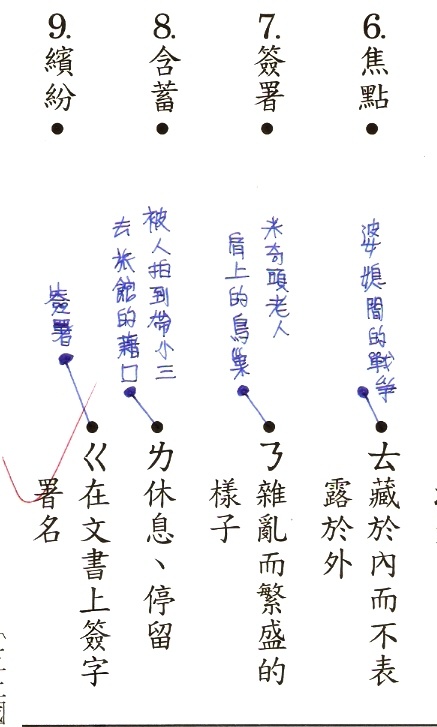 6.焦點
7.簽署
8.含蓄
9.繽紛
婆媳間的戰爭
米奇頭老人
肩上的鳥巢
被人拍到帶小三
去旅館的藉口
簽署
ㄊ藏於內而不表
露於外
ㄋ雜亂而繁盛的
樣子
ㄌ休息、停留
ㄍ在文書上簽字
署名